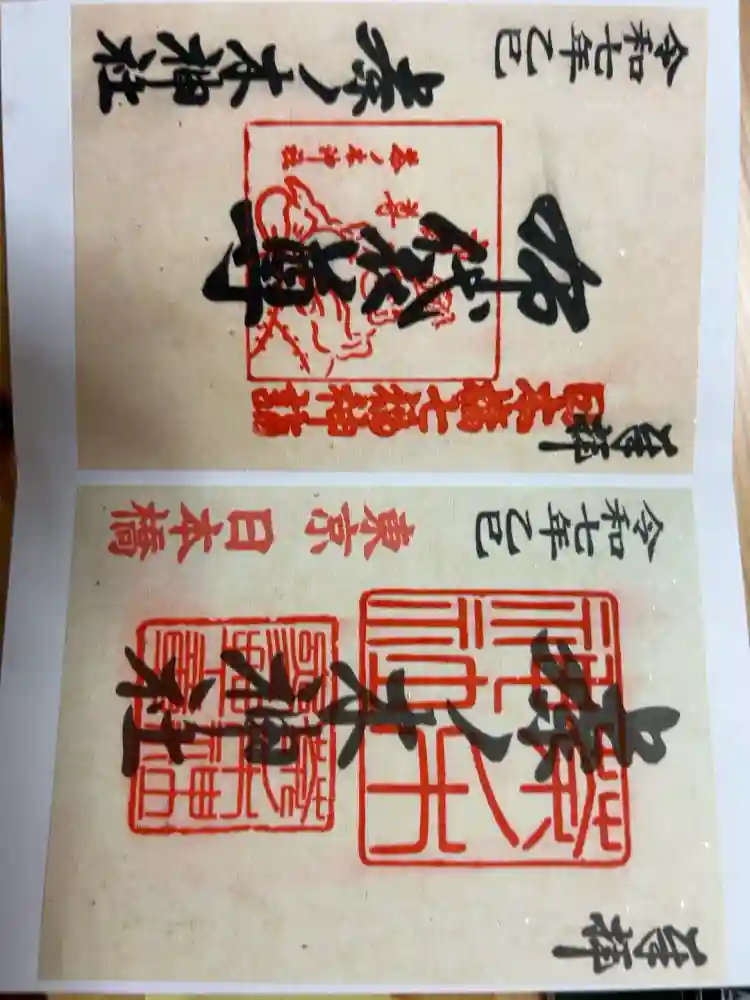 奉拝
茶ノ木神社
茶ノ木神社
令和七年乙巳
東京日本橋
奉拝
日本橋七福神詣
布袋尊
茶ノ木神社
令和七年乙巳
茶ノ木神社